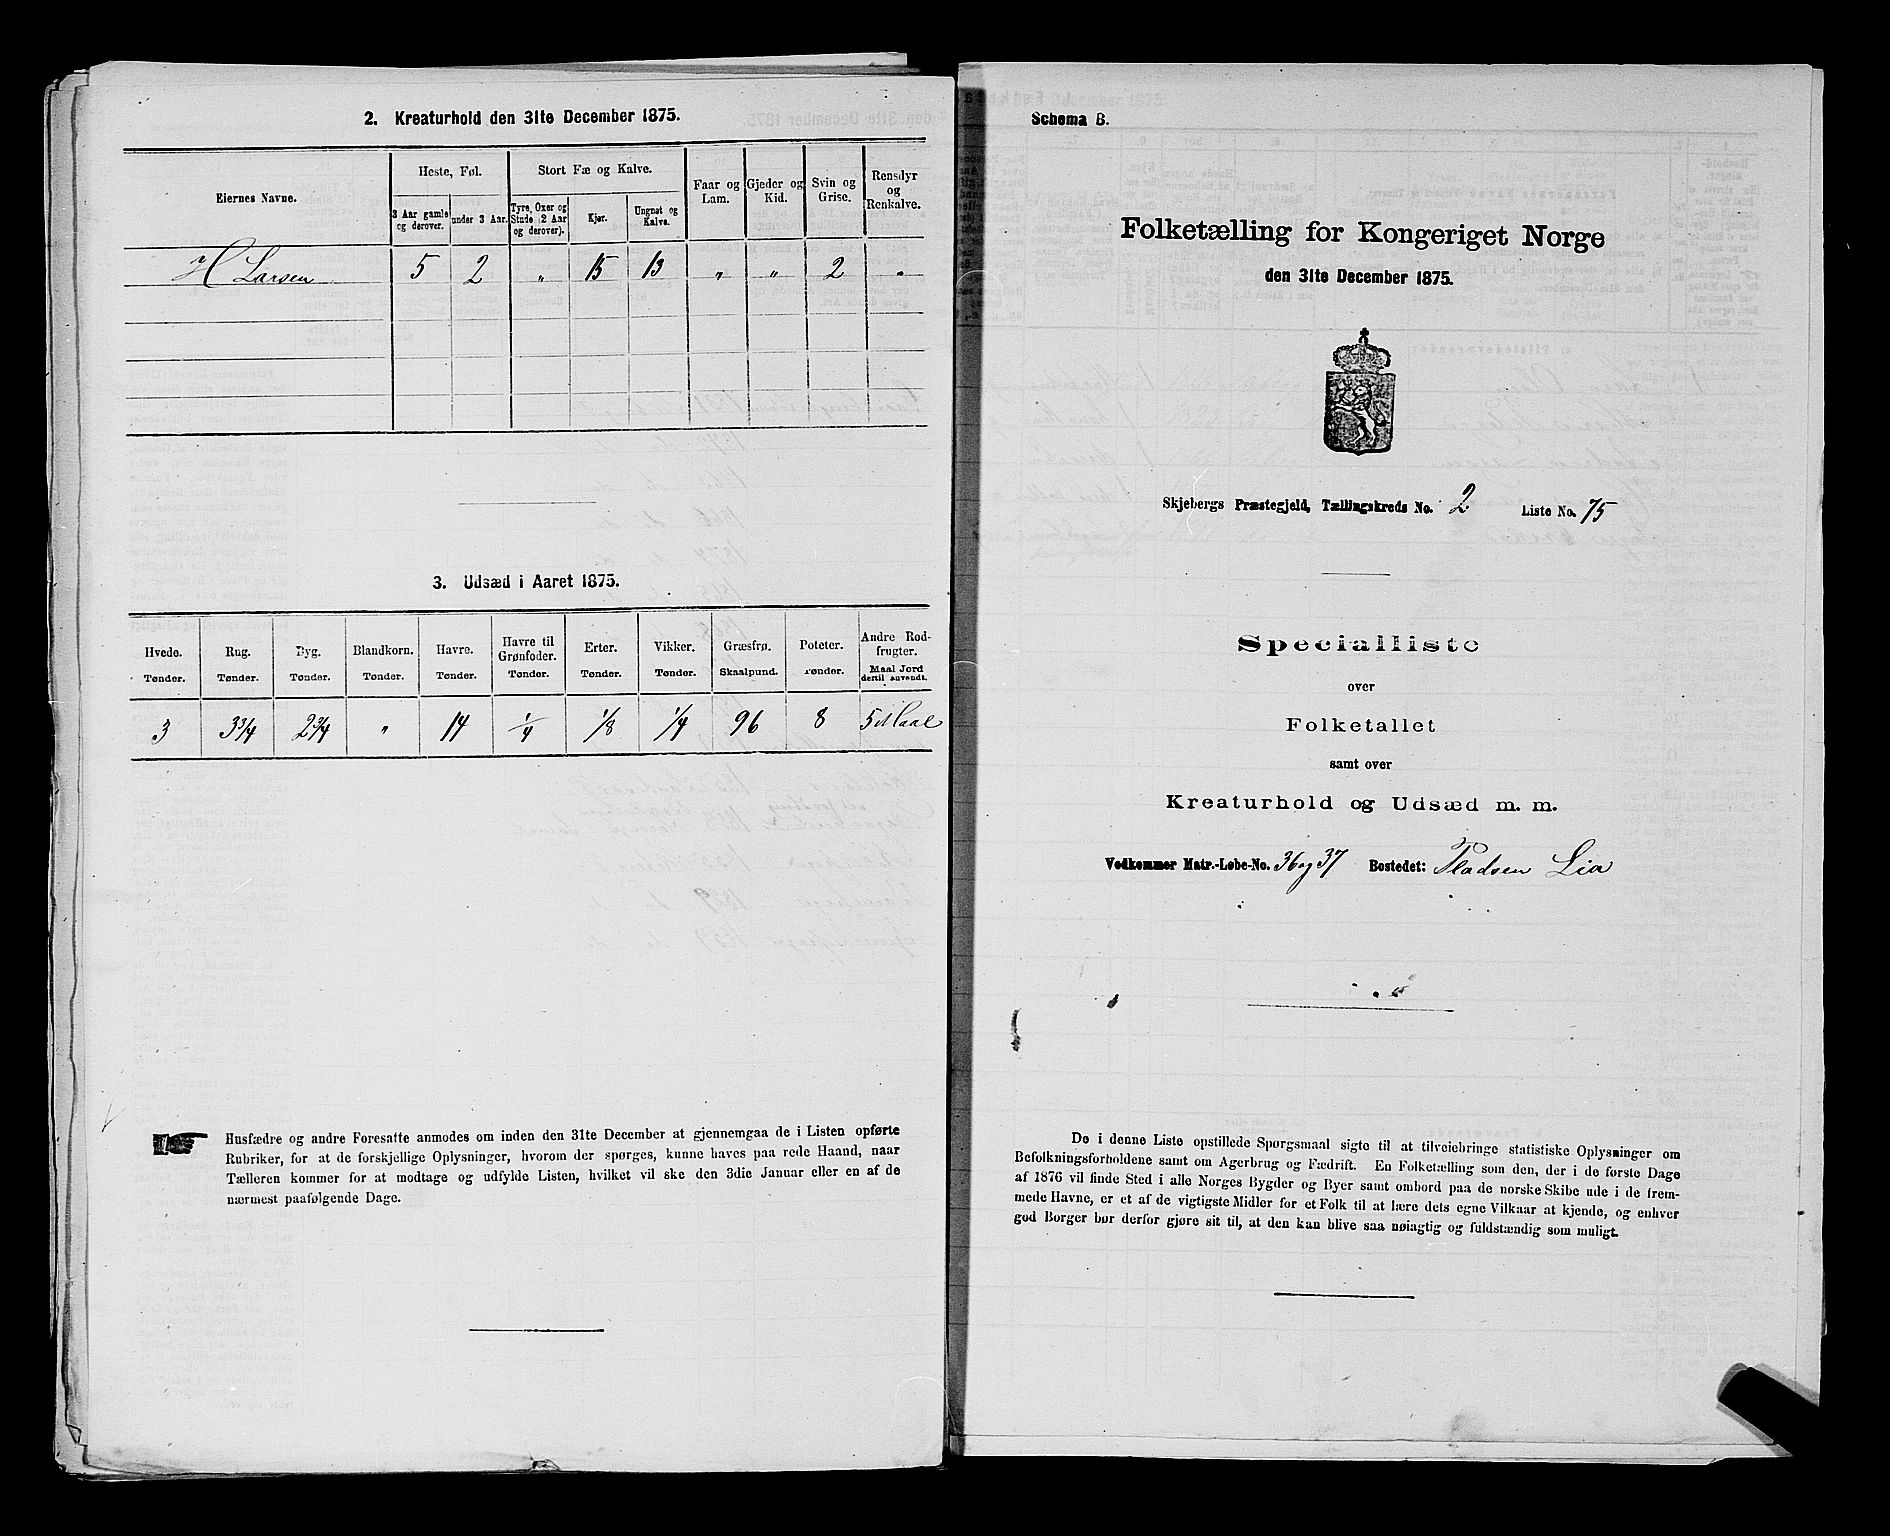 2. Kreaturhold den 31te December 1875.
Eiernes Navne.
Heste, Føl.
Stort Fæ og Kalve.
Faar og Lam.
Gjeder og Kid.
Svin og Grise.
Rensdyr og Renkalve.
3 Aar gamle og derover.
under 3 Aar.
Tyre, Oxer og Stude (2 Aar og derover).
Kjør.
Ungnøt og Kalve.
H Larsen 5 2 " 15 13 " " 2 "
3. Udsæd i Aaret 1875.
Hvede. Rug. Byg. Blandkorn. Havre. Havre til Grønfoder. Erter. Vikker. Græsfrø. Poteter. Andre Rodfrugter.
Tønder. Tønder. Tønder. Tønder. Tønder. Tønder. Tønder. Tønder. Skaalpund. Tønder. Maal Jord dertil anvendt.
3 3 3/4 2 3/4 " 14 1/4 1/8 1/4 96 8 5 Maal
Husfædre og andre Foresatte anmodes om inden den 31te December at gjennemgaa de i Listen opførte
Rubriker, for at de forskjellige Oplysninger, hvorom der spørges, kunne haves paa rede Haand, naar
Tælleren kommer for at modtage og udfylde Listen, hvilket vil ske den 3die Januar eller en af de
nærmest paafølgende Dage.
Schema B.
Folketælling for Kongeriget Norge
den 31te December 1875.
Skjebergs Præstegjeld, Tællingskreds No. 2 Liste No. 75
Specialliste
over
Folketallet
samt over
Kreaturhold og Udsæd m. m.
Vedkommer Matr.-Løbe-No. 36 og 37 Bostedet: Pladsen Lia
De i denne Liste opstillede Spørgsmaal sigte til at tilveiebringe statistiske Oplysninger om
Befolkningsforholdene samt om Agerbrug og Fædrift. En Folketælling som den, der i de første Dage
af 1876 vil finde Sted i alle Norges Bygder og Byer samt ombord paa de norske Skibe ude i de frem-
mede Havne, er et af de vigtigste Midler for et Folk til at lære dets egne Vilkaar at kjende, og enhver
god Borger bør derfor gjøre sit til, at den kan blive saa nøiagtig og fuldstændig som muligt.